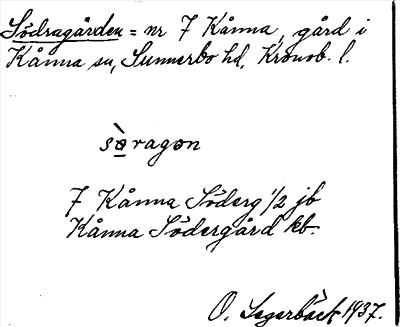 Södragården = nr 7 Kånna, gård i
Kånna sn, Sunnerbo hd, Kronob. l.
sə̀ragən
7 Kånna Söderg 1/2 jb
Kånna Södergård kb.
O. Lagerbäck 1937.